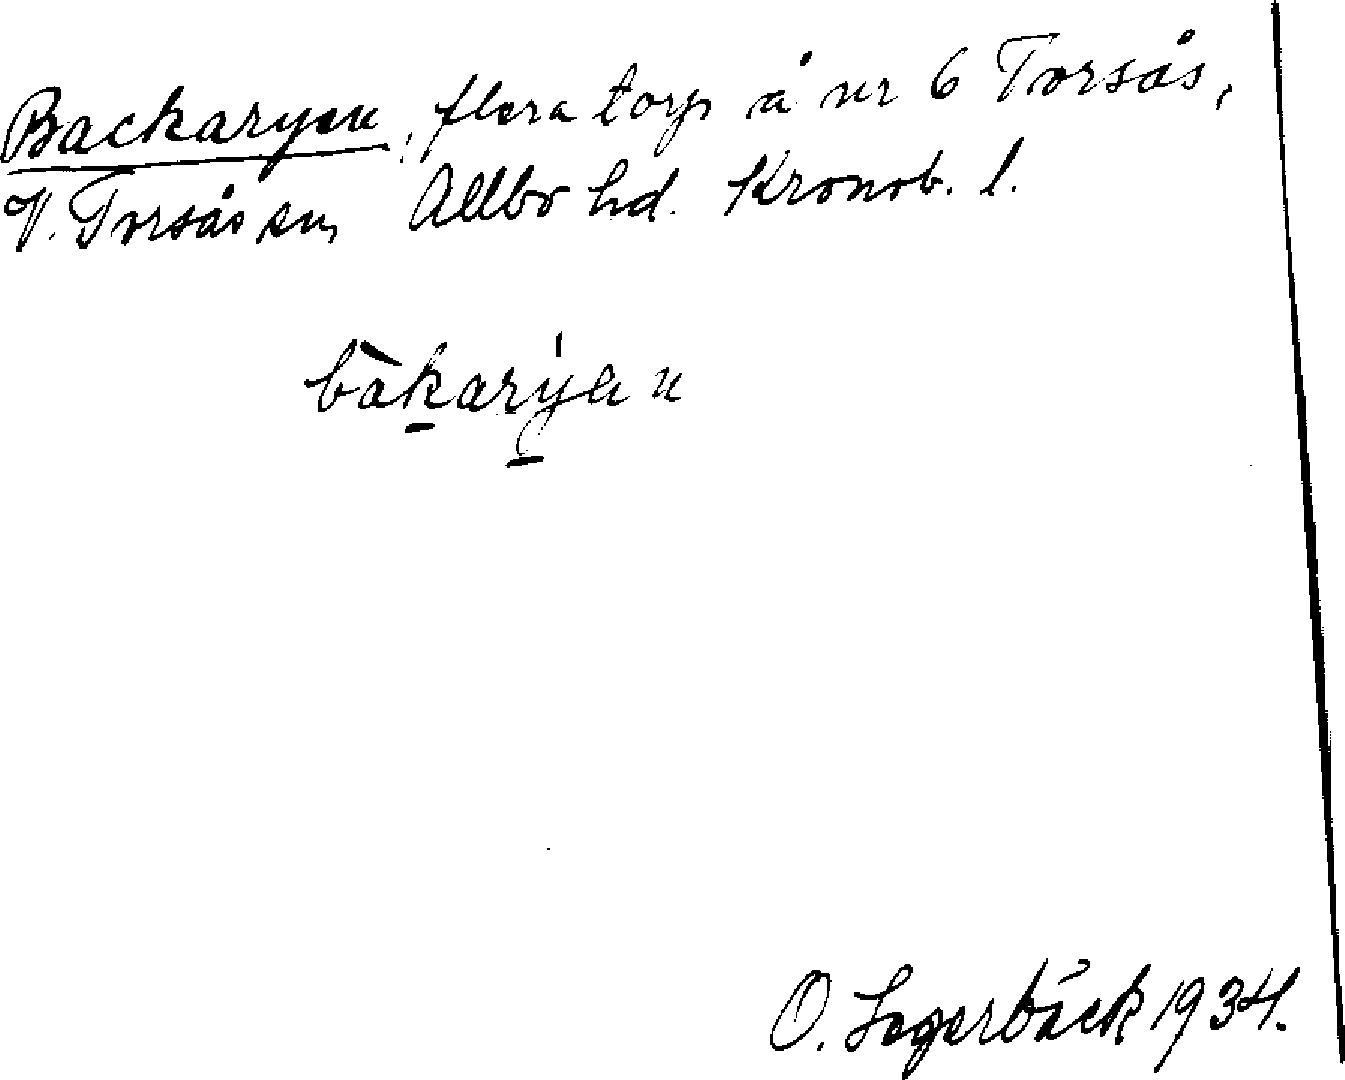 Backaryen, flera torp å nr 6 Torsås,
V. Torsås sn, Allbo hd. Kronob. l.
bàkarýen
O. Segerbäck 1934.